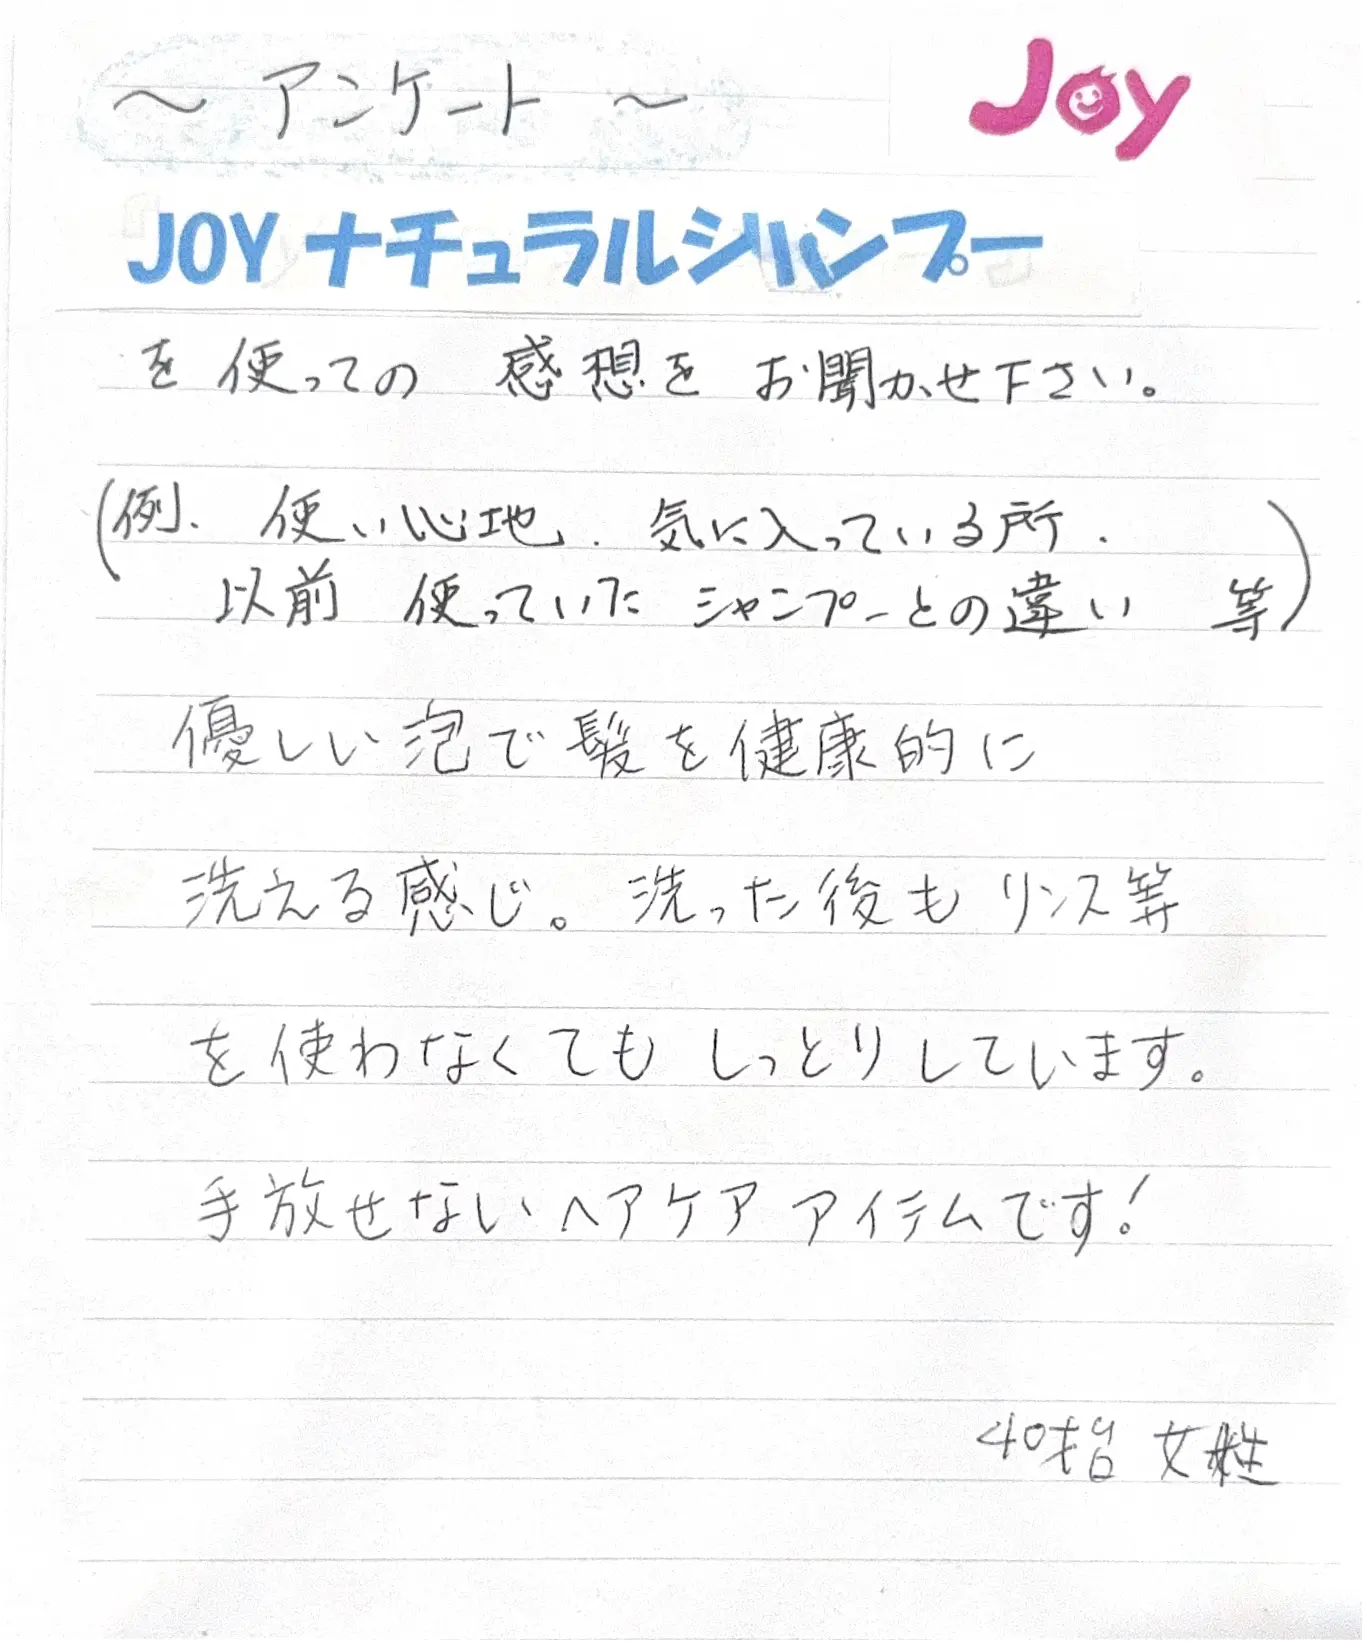 ～ アンケート ～
Joy
JOY ナチュラルシャンプー
を使っての 感想を お聞かせ下さい。
(例. 使い心地. 気に入っている所.
以前 使っていた シャンプーとの違い 等)
優しい泡で髪を健康的に
洗える感じ。洗った後も リンス等
を使わなくても しっとりしています。
手放せないヘアケア アイテムです!
40才台 女性